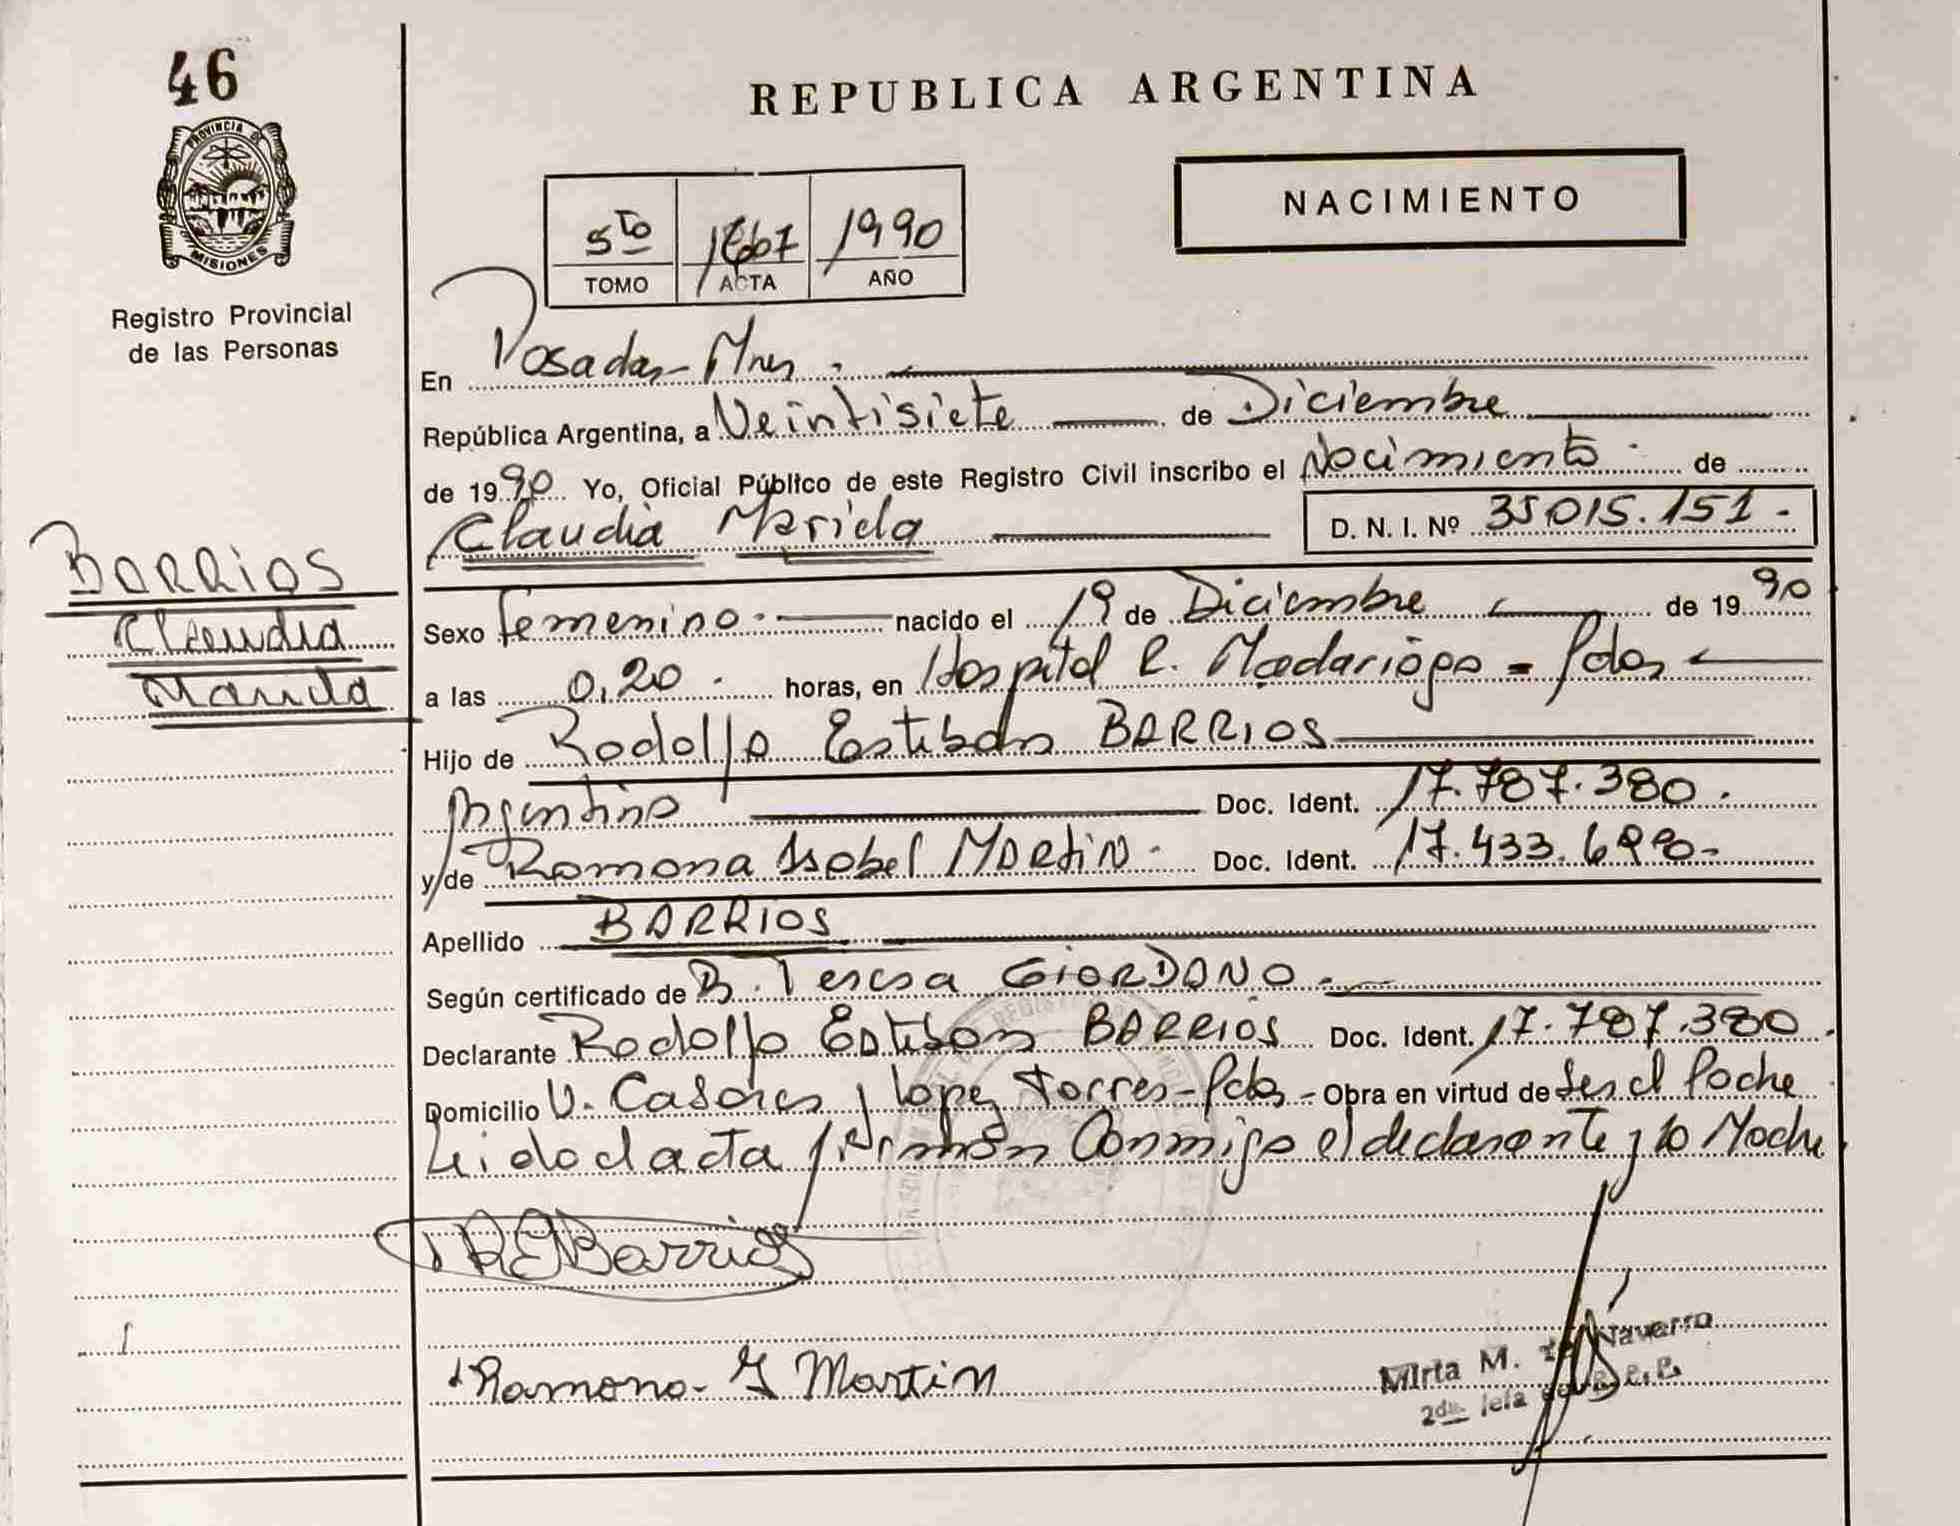 46
PROVINCIA DE
MISIONES
Registro Provincial
de las Personas
BARRIOS
Claudia
Mariela
REPUBLICA ARGENTINA
NACIMIENTO
5to 1667 1990
TOMO ACTA AÑO
En Posadas - Mnes.
República Argentina, a Veintisiete de Diciembre
de 1990 Yo, Oficial Público de este Registro Civil inscribo el Nacimiento de
Claudia Mariela D. N. I. Nº 35015.151.-
Sexo femenino.- nacido el 19 de Diciembre de 1990
a las 0,20. horas, en Hospital R. Madariaga = Pdas
Hijo de Rodolfo Esteban BARRIOS
Argentino Doc. Ident. 17.787.380.
y de Ramona Isabel MARTIN. Doc. Ident. 17.433.690-
Apellido BARRIOS
Según certificado de B. Teresa GIORDANO.-
Declarante Rodolfo Esteban BARRIOS Doc. Ident. 17.787.380.
Domicilio V. Casares y Lopez Torres - Pdas - Obra en virtud de ser el Padre
Leido el acta firman conmigo el declarante y la Madre
REBarrios
Ramona I Martin
Mirta M. de Navarro
2da Jefa